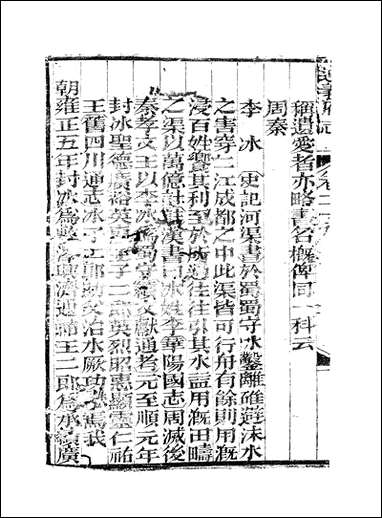 稱遺愛者亦略書名概俾同一科云
周秦
李冰 史記河渠書於蜀蜀守冰鑿離碓避沫水
之害穿二江成都之中此渠皆可行舟有餘則用溉
浸百姓饗其利至於所過往往引其水益用溉田疇
之渠以萬億計 漢書曰冰姓李華陽國志周滅後
秦孝文王以李冰爲蜀守 文獻通考元至順元年
封冰聖德廣裕英惠王子二郎英烈昭惠顯靈仁祐
王舊四川通志冰 子二郎 父治水厥功 焉我
朝雍正五年封冰爲敷澤興濟通祐王二郎爲承績廣